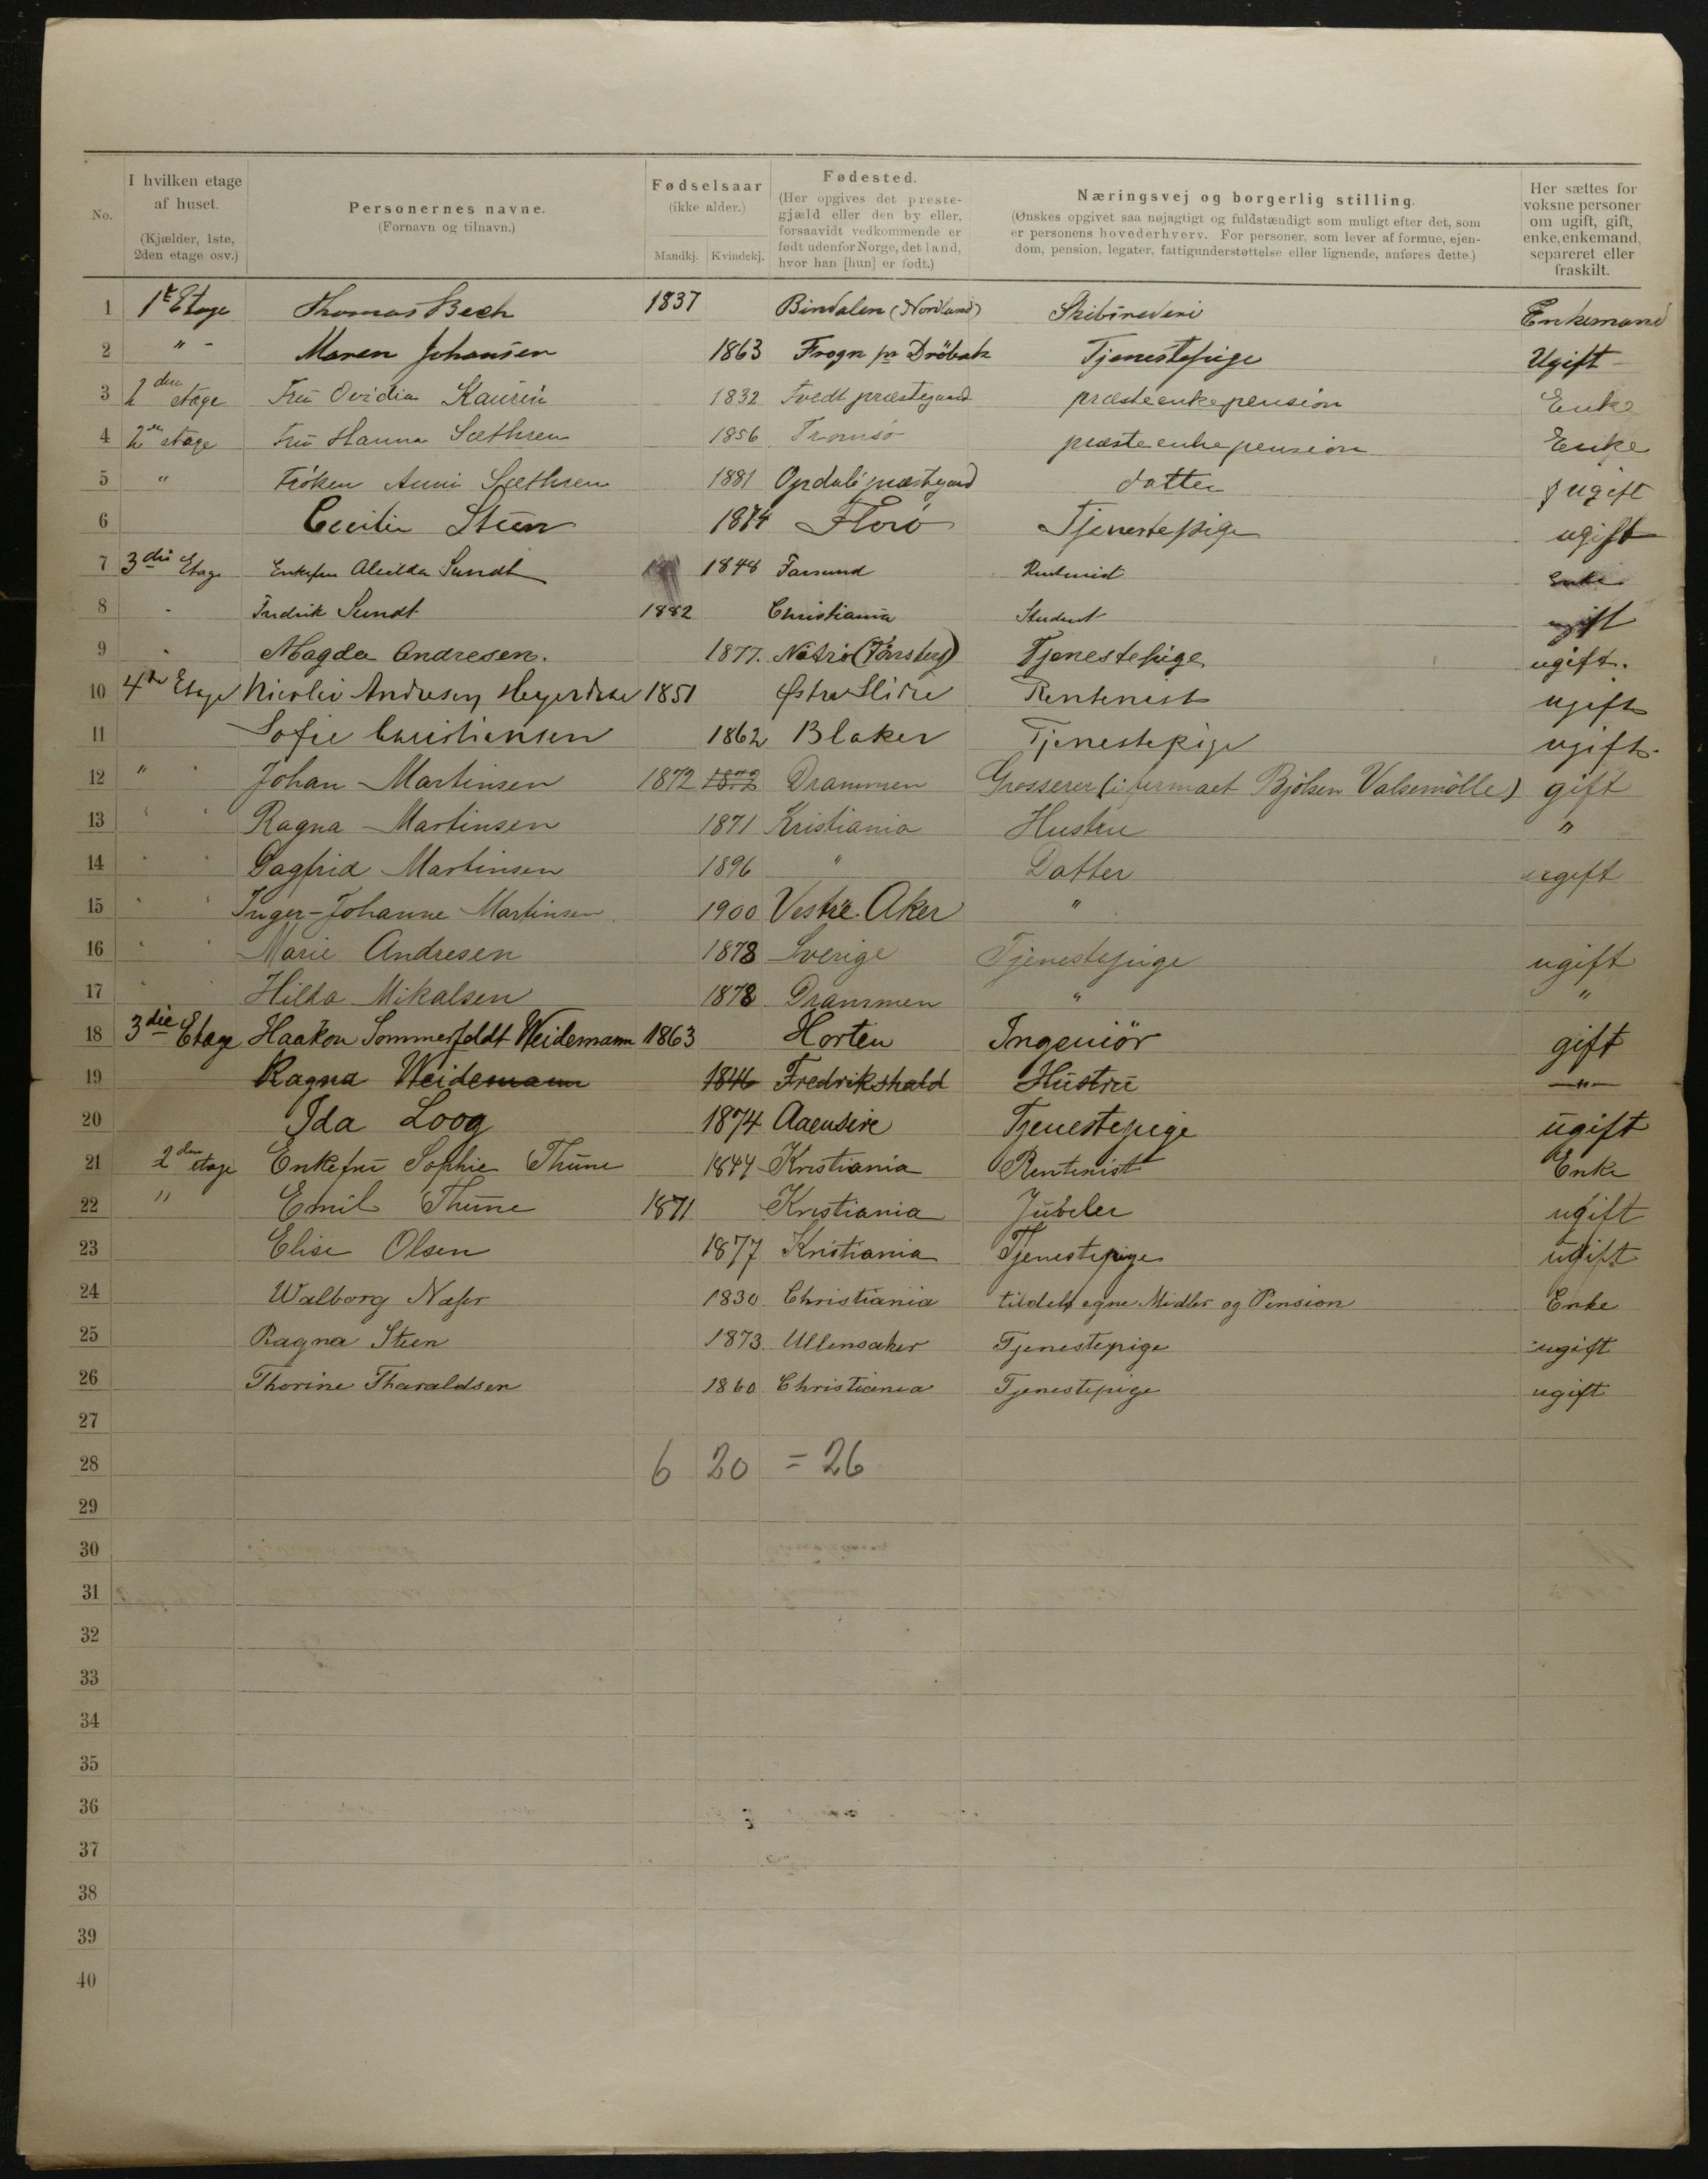 No.
I hvilken etage af huset. (Kjælder, 1ste, 2den etage osv.)
Personernes navne. (Fornavn og tilnavn.)
Fødselsaar (ikke alder.) Mandkj. Kvindekj.
Fødested. (Her opgives det prestegjæld eller den by eller, forsaavidt vedkommende er født udenfor Norge, det land, hvor han [hun] er født.)
Næringsvej og borgerlig stilling. (Ønskes opgivet saa nøjagtigt og fuldstændigt som muligt efter det, som er personens hovederhverv. For personer, som lever af formue, ejendom, pension, legater, fattigunderstøttelse eller lignende, anføres dette.)
Her sættes for voksne personer om ugift, gift, enke, enkemand, separeret eller fraskilt.
1 1ste Etage Thomas Bech 1837 Bindalen (Nordland) Skibsrederi Enkemand
2 " - Maren Johansen 1863 Frogn pr Dröbak Tjenestepige Ugift
3 2den etage Fru Ovidia Kaurin 1832 Tvedt præstegaard præsteenkepension Enke
4 2den etage Fru Hanna Sæthren 1856 Tromsö præsteenkepension Enke
5 " Fröken Anni Sæthren 1881 Opdals præstegaard datter ugift
6 Cecilie Steen 1874 Florö Tjenestepige ugift
7 3die Etage Enkefru Sundt 1848 Farsund Rentenist Enke
8 Fredrik Sundt 1882 Christiania Student
9 Magda Andresen. 1877. Nötrö (Tönsberg) Tjenestepige ugift.
10 4de Etage Nicolai Andresen Heyerdahl 1851 Østre Slidre Rentenist ugift
11 Sofie Christiansen 1862 Blaker Tjenestepige ugift.
12 " " Johan Martinsen 1872 1872 Drammen Grosserer (i firmaet Bjölsen Valsemölle) gift
13 " " Ragna Martinsen 1871 Kristiania Hustru "
14 " " Dagfrid Martinsen 1896 " Datter ugift
15 " " Inger-Johanne Martinsen 1900 Vestre Aker "
16 " " Marie Andresen 1878 Sverige Tjenestepige ugift
17 " " Hilda Mikalsen 1878 Drammen " "
18 3die Etage Haakon Sommerfeldt Weidemann 1863 Horten Ingeniör gift
19 Ragna Weidemann 1846 Fredrikshald Hustru — " —
20 Ida Loog 1874 Aaensire Tjenestepige ugift
21 2den etage Enkefru Sophie Thune 1844 Kristiania Rentenist Enke
22 " Emil Thune 1871 Kristiania Juveler ugift
23 Elise Olsen 1877 Kristiania Tjenestepige ugift
24 Walborg Naser 1830 Christiania tildels egne Midler og Pension Enke
25 Ragna Steen 1873 Ullensaker Tjenestepige ugift
26 Thorine Tharaldsen 1860 Christiania Tjenestepige ugift
27
28 6 20 = 26
29
30
31
32
33
34
35
36
37
38
39
40